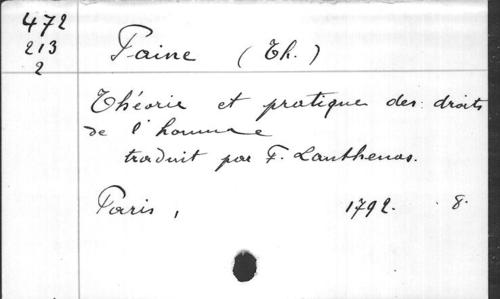 472
213
2
Paine (Th.)
Théorie et pratique des droits
de l'homme
traduit par F. Lanthenas.
Paris, 1792. 8.